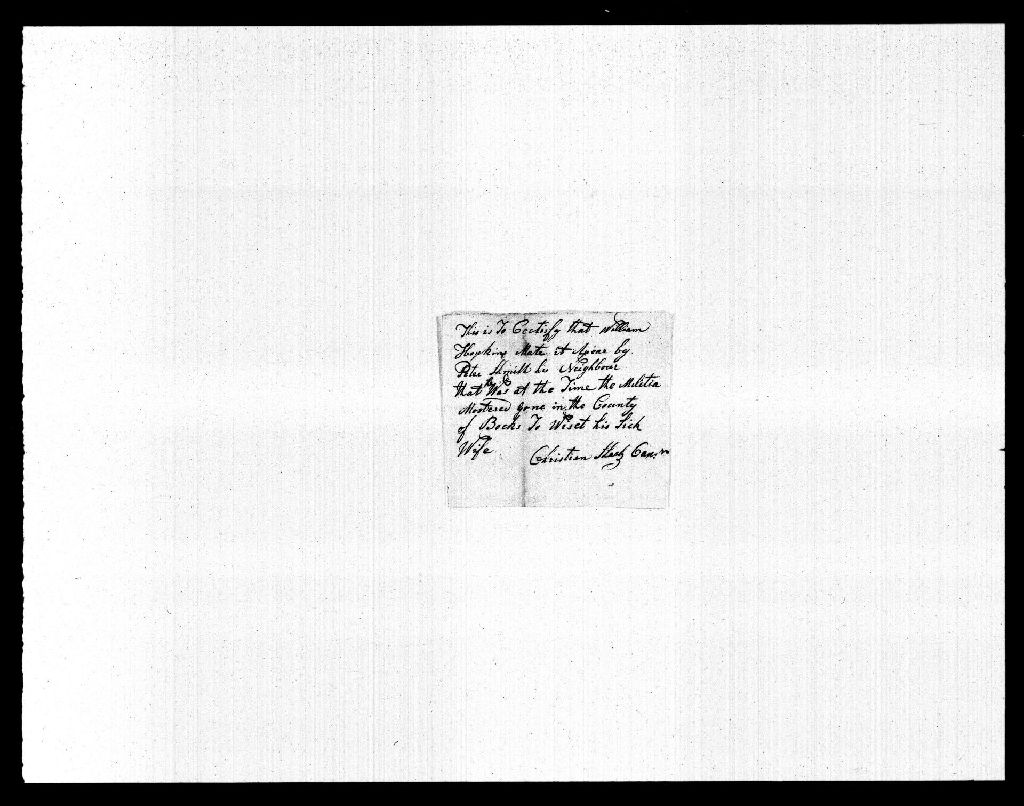 This is To Certify that William
Hopkins Mate it Apear by
Peter Shmitt his Neighbour
that he Was at the Time the Militia
Mostered gone in the County
of Bocks To Wiset his Sick
Wife
Christian